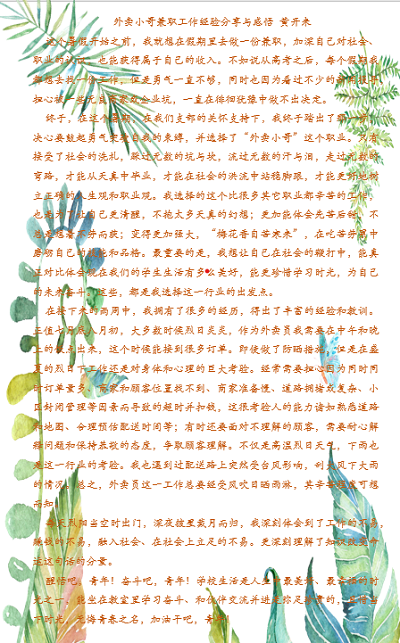 外卖小哥兼职工作经验分享与感悟 黄开来
这个暑假开始之前，我就想在假期里去做一份兼职，加深自己对社会、
职业的认识，也能获得属于自己的收入。不如说从高考之后，每个假期我
都想去找一份工作，但是勇气一直不够，同时也因为看过不少的新闻报导
担心被一些无良商家或企业坑，一直在徘徊犹豫中做不出决定。
终于，在这个暑期，在我们支部的关怀支持下，我终于踏出了第一步，
决心要鼓起勇气突破自我的束缚，并选择了“外卖小哥”这个职业。只有
接受了社会的洗礼，踩过无数的坑与坎，流过无数的汗与泪，走过无数的
弯路，才能从天真中毕业，才能在社会的洪流中站稳脚跟，才能更好地树
立正确的人生观和职业观。我选择的这个比很多其它职业都辛苦的工作，
也是为了让自己更清醒，不抱太多天真的幻想；更加能体会先苦后甜，不
总是想着不劳而获；变得更加强大，“梅花香自苦寒来”，在吃苦分晨中
磨砺自己的技能和品格。最重要的是，我想让自己在社会的鞭打中，能真
正对比体会现在我们的学生生活有多么美好，能更珍惜学习时光，为自己
的未来奋斗。这些，都是我选择这一行业的出发点。
在接下来的两周中，我拥有了很多的经历，得出了丰富的经验和教训。
正值七月底八月初，大多数时候烈日炎炎，作为外卖员我需要在中午和晚
上的饭点出来，这个时候能接到很多订单。即使做了防晒措施，但是在盛
夏的烈日下工作还是对身体和心理的巨大考验。经常需要担心因为同时间
时订单量多、商家和顾客位置找不到、商家准备慢、道路拥堵或复杂、小
区封闭管理等因素而导致的超时并扣钱，这很考验人的能力诸如熟悉道路
和地图、合理预估配送时间等；有时还要面对不理解的顾客，需要耐心解
释问题和保持最敬的态度，争取顾客理解。不仅是高温烈日天气，下雨也
是这一行业的考验。我也遇到过配送路上突然受台风影响，刮大风下大雨
的情况。总之，外卖员这一工作总要经受风吹日晒雨淋，其辛苦程度可想
而知。
每天烈阳当空时出门，深夜披星戴月而归，我深刻体会到了工作的不易，
赚钱的不易，融入社会、在社会上立足的不易。更深刻理解了知识改变命
运这句话的分量。
醒悟吧，青年！奋斗吧，青年！学校生活是人生中最美好、最幸福的时
光之一，能坐在教室里学习奋斗、和伙伴交流并进是弥足珍贵的，珍惜当
下时光，无悔青春之名，加油干吧，青年！